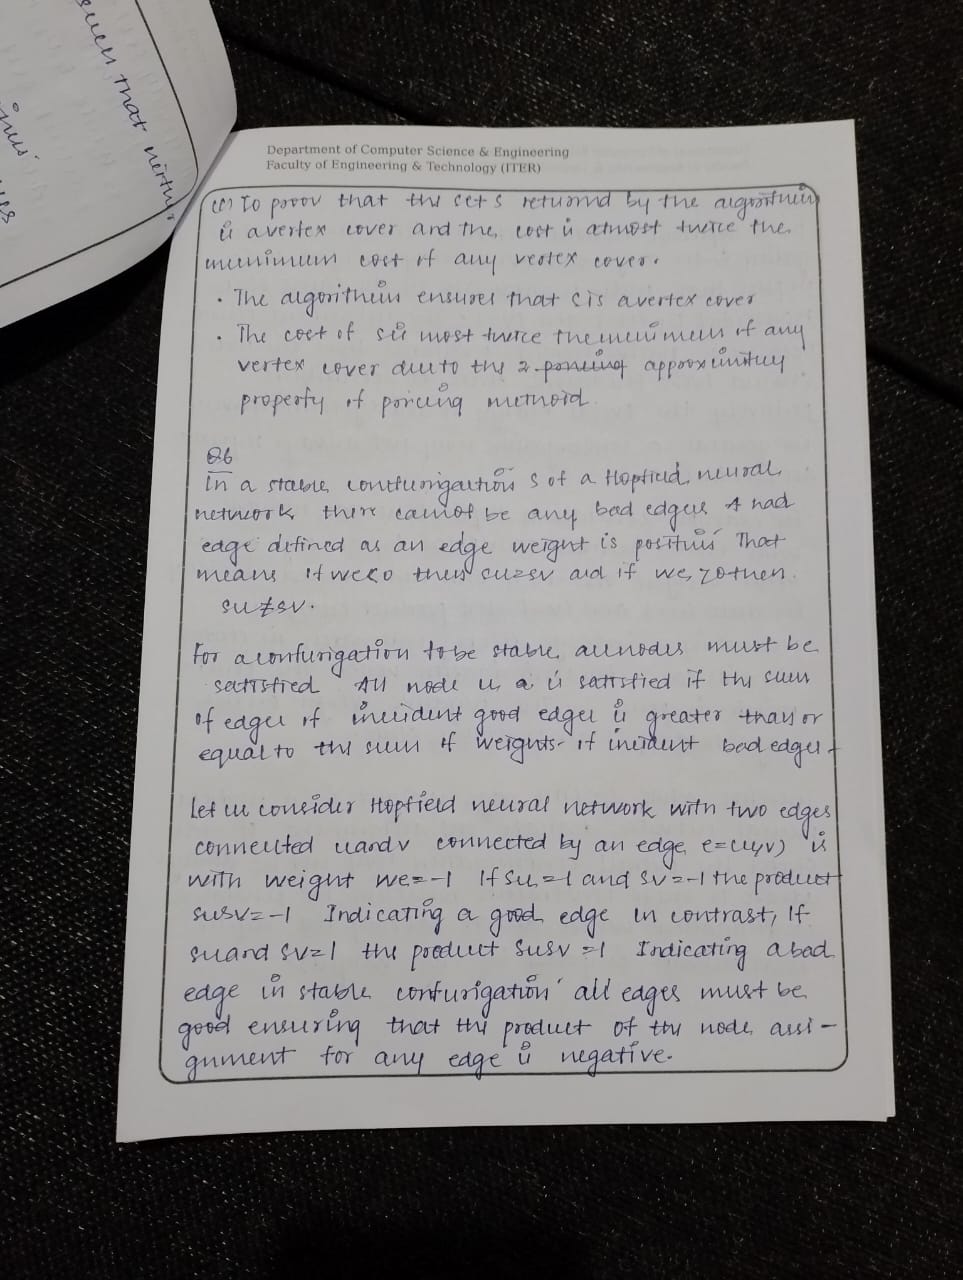 such that
Department of Computer Science & Engineering
Faculty of Engineering & Technology (ITER)
(c) To proov that the set S returnd by the algorithim
is a vertex cover and the cost is atmost twice the
munimum cost of any vertex cover.
• The algorithim ensures that S is a vertex cover
• The cost of S is most twice the minimum of any
vertex cover due to the 2 approximity
property of pricing method.
Q6
In a stable configaration S of a Hopfield neural
network there cannot be any bad edges A bad
edge defined as an edge weight is positive That
means if we<0 then su=sv and if we>0 then
su≠sv.
For a confurigation to be stable all nodes must be
satisfied All node u a is satisfied if the sum
of edges of incident good edges is greater than or
equal to the sum of weights of incident bad edges
Let us consider Hopfield neural network with two edges
connected u and v connected by an edge e=(u,v) is
with weight we=-1 If su=1 and sv=-1 the product
susv=-1 Indicating a good edge in contrast, If
su and sv=1 the product susv=1 Indicating a bad
edge in stable confurigation all edges must be
good ensuring that the product of the node assi-
gnment for any edge is negative.